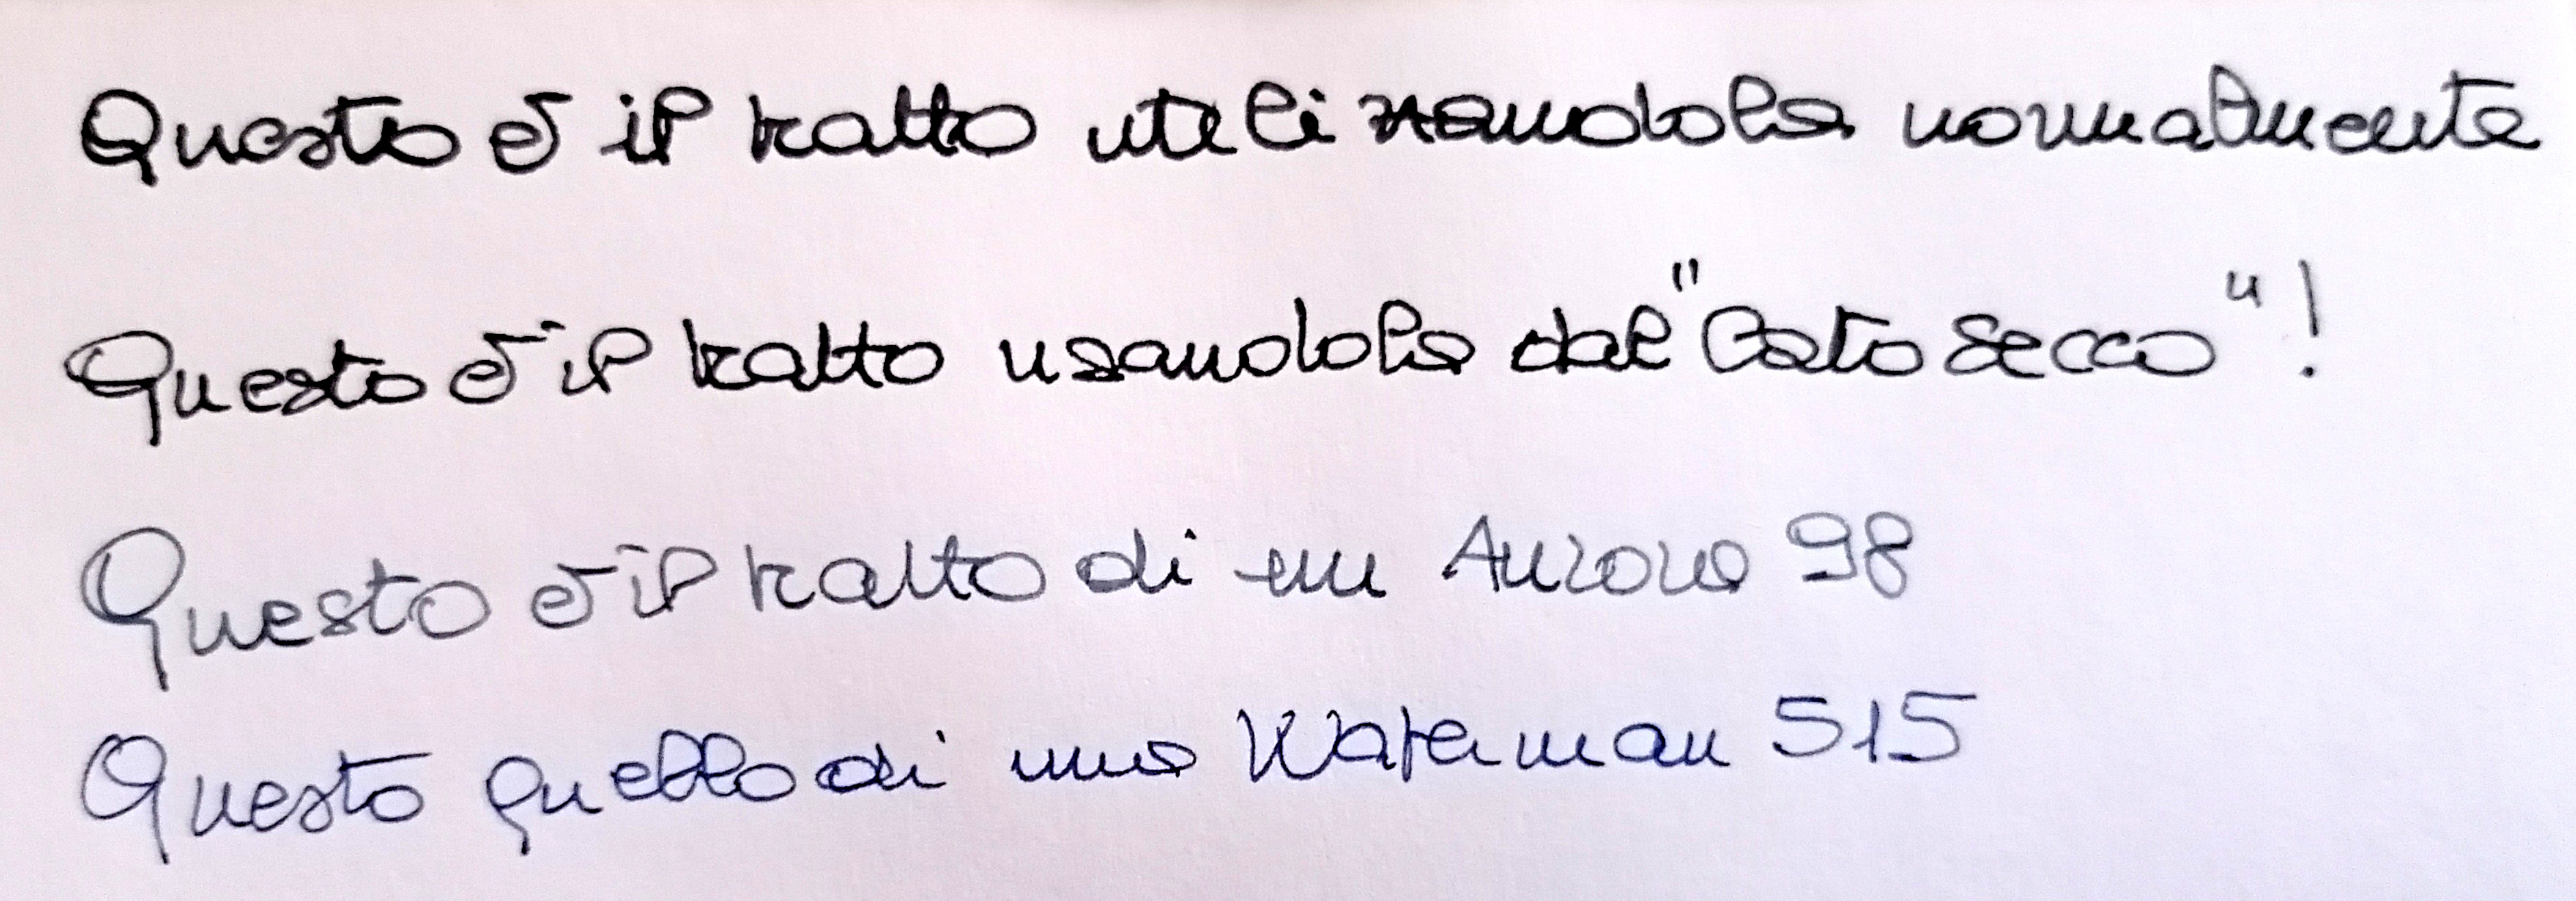 Questo è il tratto utilizzandola normalmente
Questo è il tratto usandola dal "Lato secco"!
Questo è il tratto di un Aurora 98
Questo quello di una Waterman 515